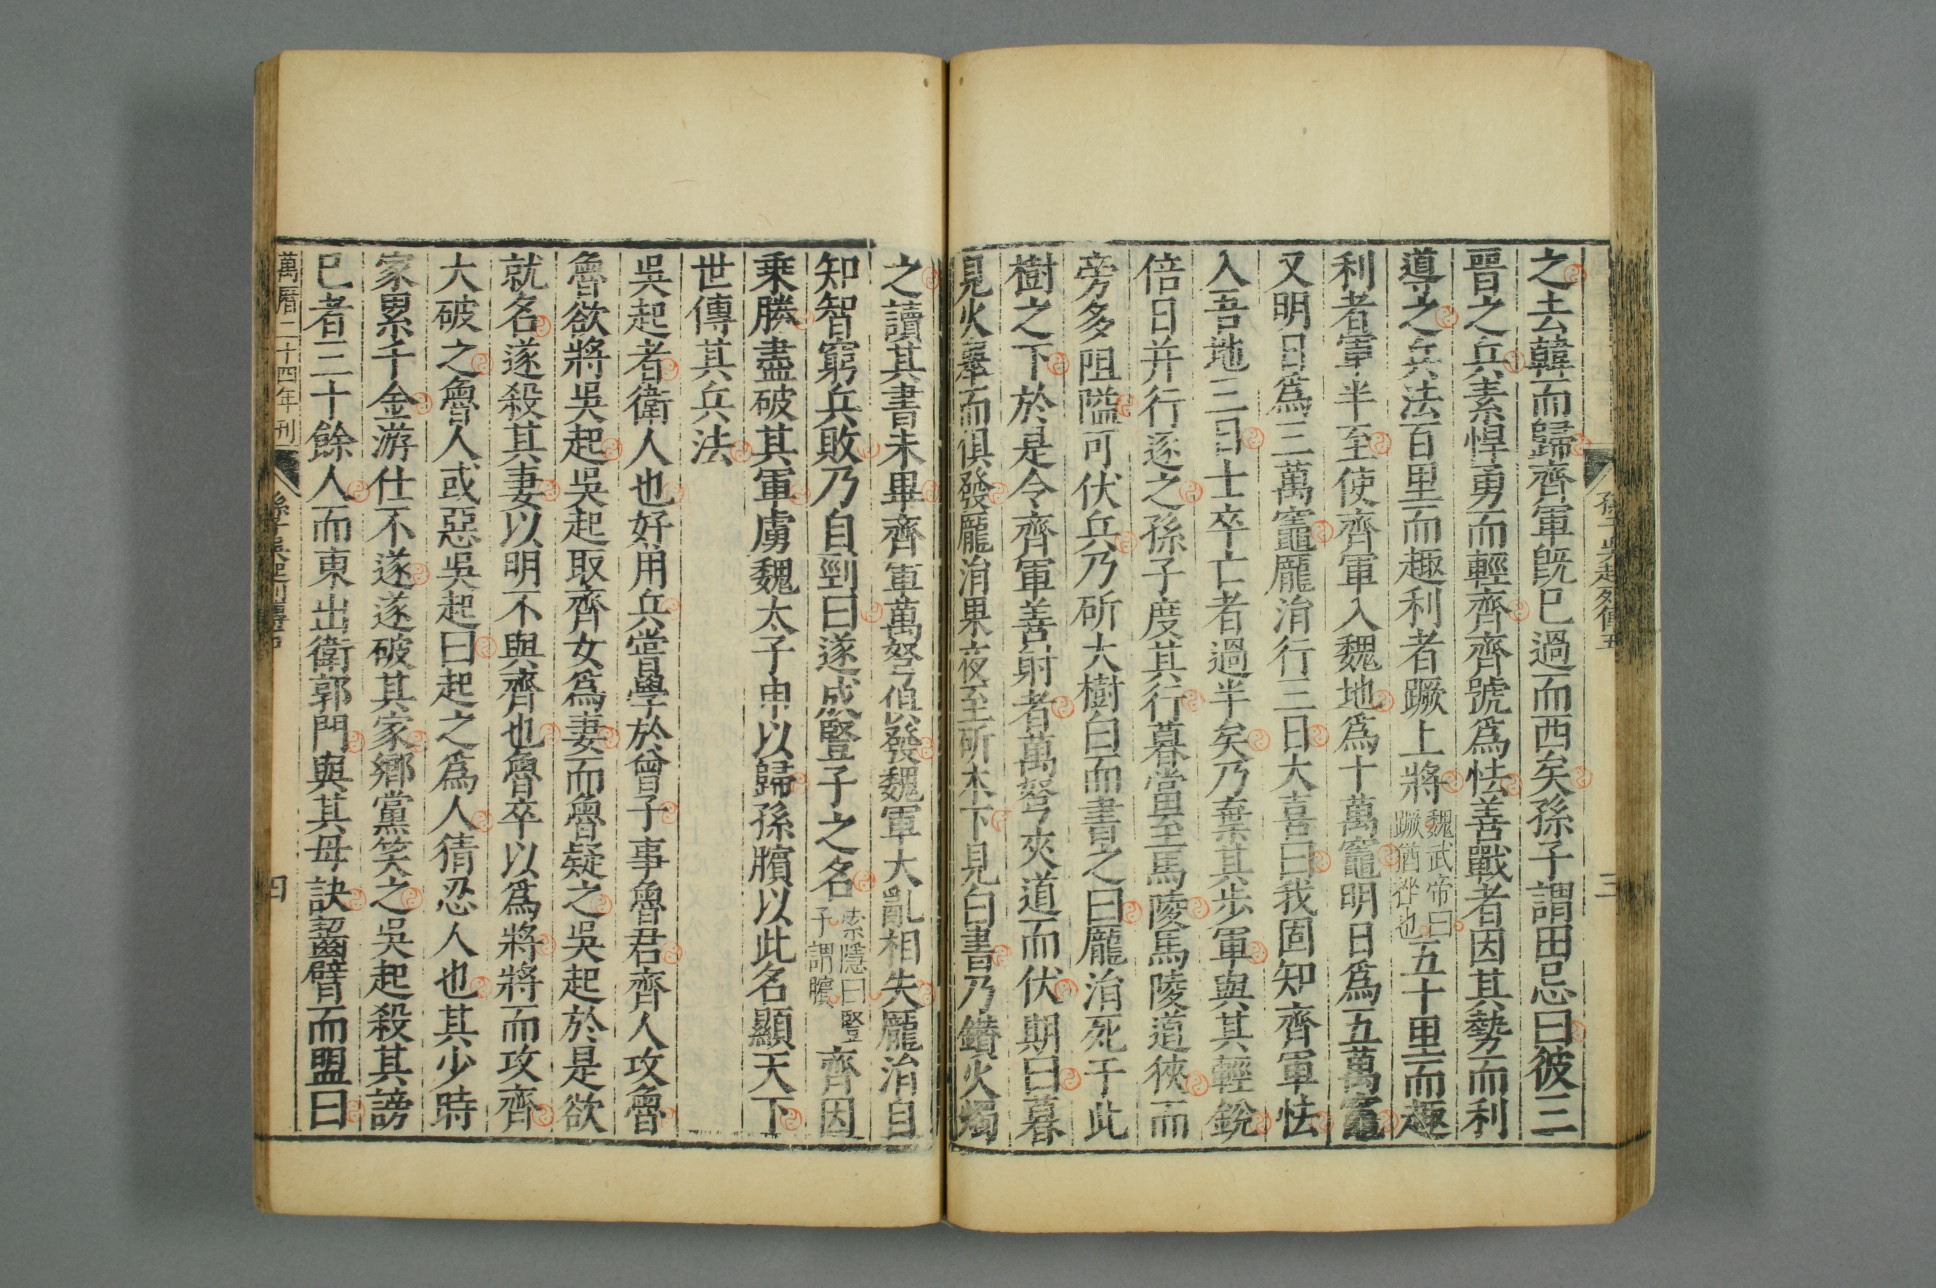 之去韓而歸齊軍旣巳過而西矣孫子謂田忌曰彼三
晉之兵素悍勇而輕齊齊號爲怯善戰者因其勢而利
導之兵法百里而趣利者蹶上將魏武帝曰蹶猶挫也五十里而趣
利者軍半至使齊軍入魏地爲十萬竈明日爲五萬竈
又明日爲三萬竈龎涓行三日大喜曰我固知齊軍怯
入吾地三日士卒亡者過半矣乃棄其步軍與其輕銳
倍日并行逐之孫子度其行暮當至馬陵馬陵道狹而
旁多阻隘可伏兵乃斫大樹白而書之曰龎涓死于此
樹之下於是令齊軍善射者萬弩夾道而伏期曰暮
見火舉而俱發龎涓果夜至斫木下見白書乃鑽火燭
之讀其書未畢齊軍萬弩俱發魏軍大亂相失龎涓自
知智窮兵敗乃自剄曰遂成豎子之名索隱曰豎子謂臏齊因
乗勝盡破其軍虜魏太子申以歸孫臏以此名顯天下
世傳其兵法
吳起者衛人也好用兵嘗學於曾子事魯君齊人攻魯
魯欲將吳起吳起取齊女爲妻而魯疑之吳起於是欲
就名遂殺其妻以明不與齊也魯卒以爲將將而攻齊
大破之魯人或惡吳起曰起之爲人猜忍人也其少時
家累千金游仕不遂遂破其家鄉黨笑之吳起殺其謗
巳者三十餘人而東出衛郭門與其母訣齧臂而盟曰
萬曆二十四年刊
孫子吳起列傳五
三
四